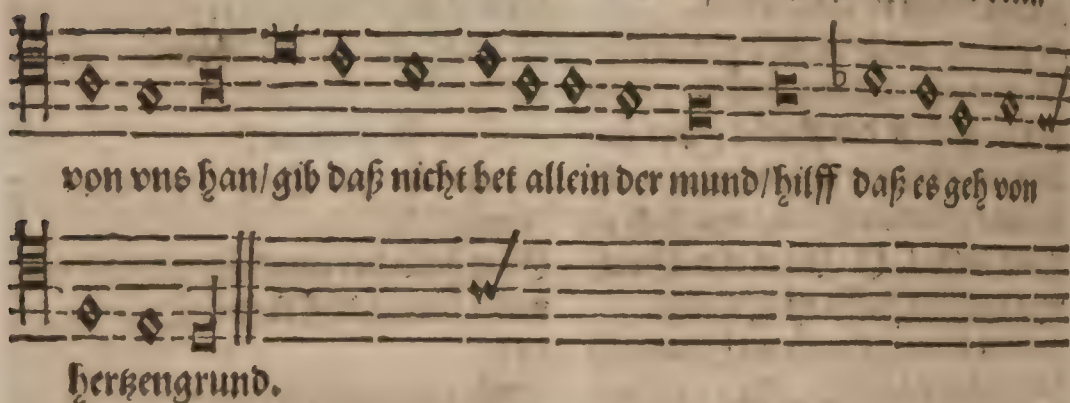 von vns han/gib daß nicht bet allein der mund/hilff daß es geh von
hertzengrund.